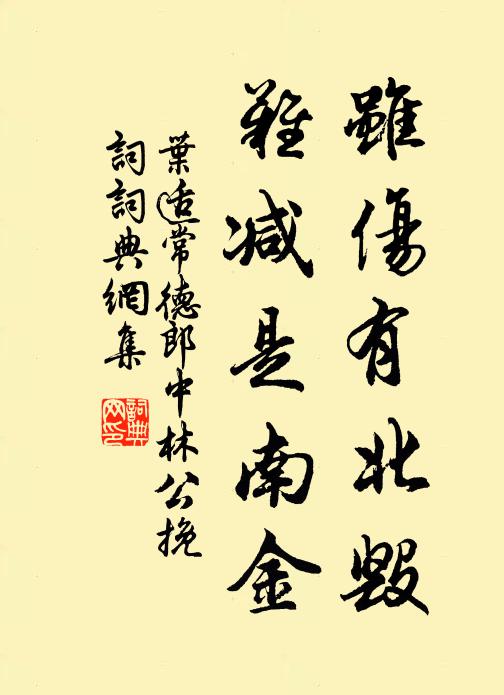 雖傷有北毀
難减是南金
葉适常德郎中林公挽
詞詞典網集
詞典网印